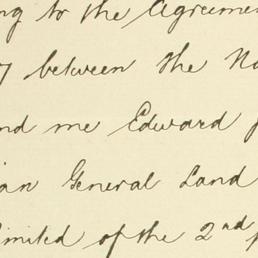 ng to the Agreemen
7 between the No
nd me Edward
ian General Land
limited of the 2nd p